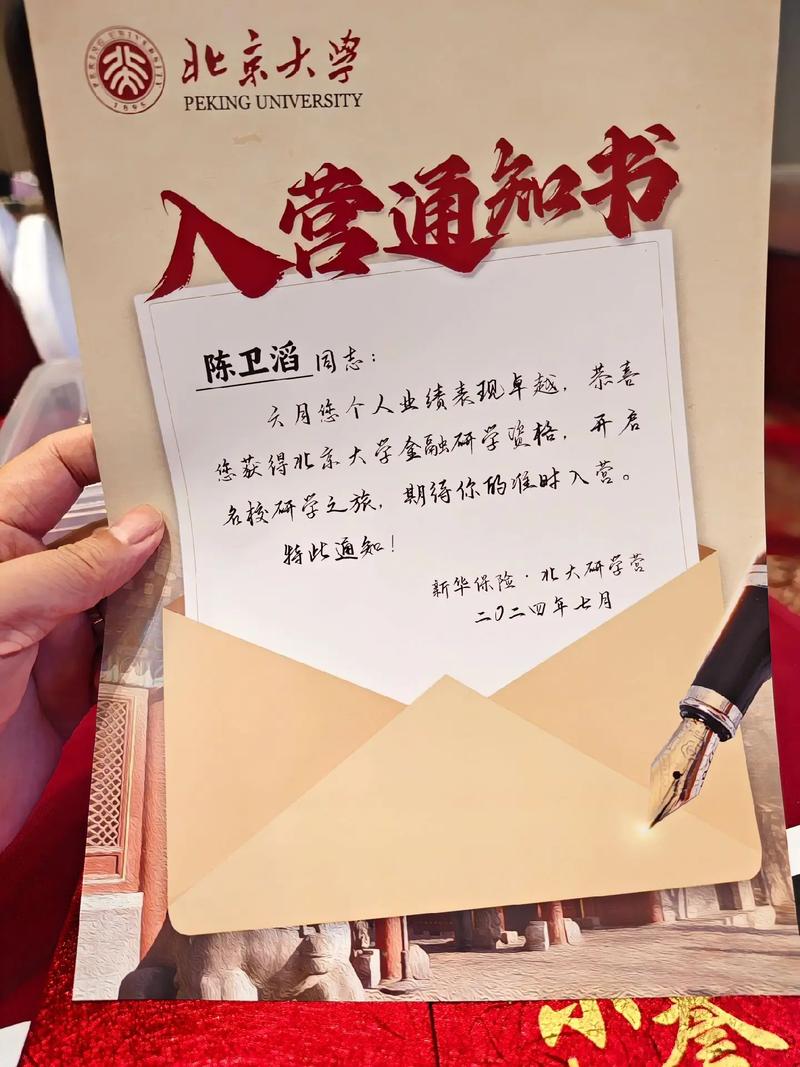 北京大学
PEKING UNIVERSITY
1898
入营通知书
陈卫滔 同志：
六月您个人业绩表现卓越，恭喜
您获得北京大学金融研学资格，开启
名校研学之旅，期待你的准时入营。
特此通知！
新华保险·北大研学营
二〇二四年七月